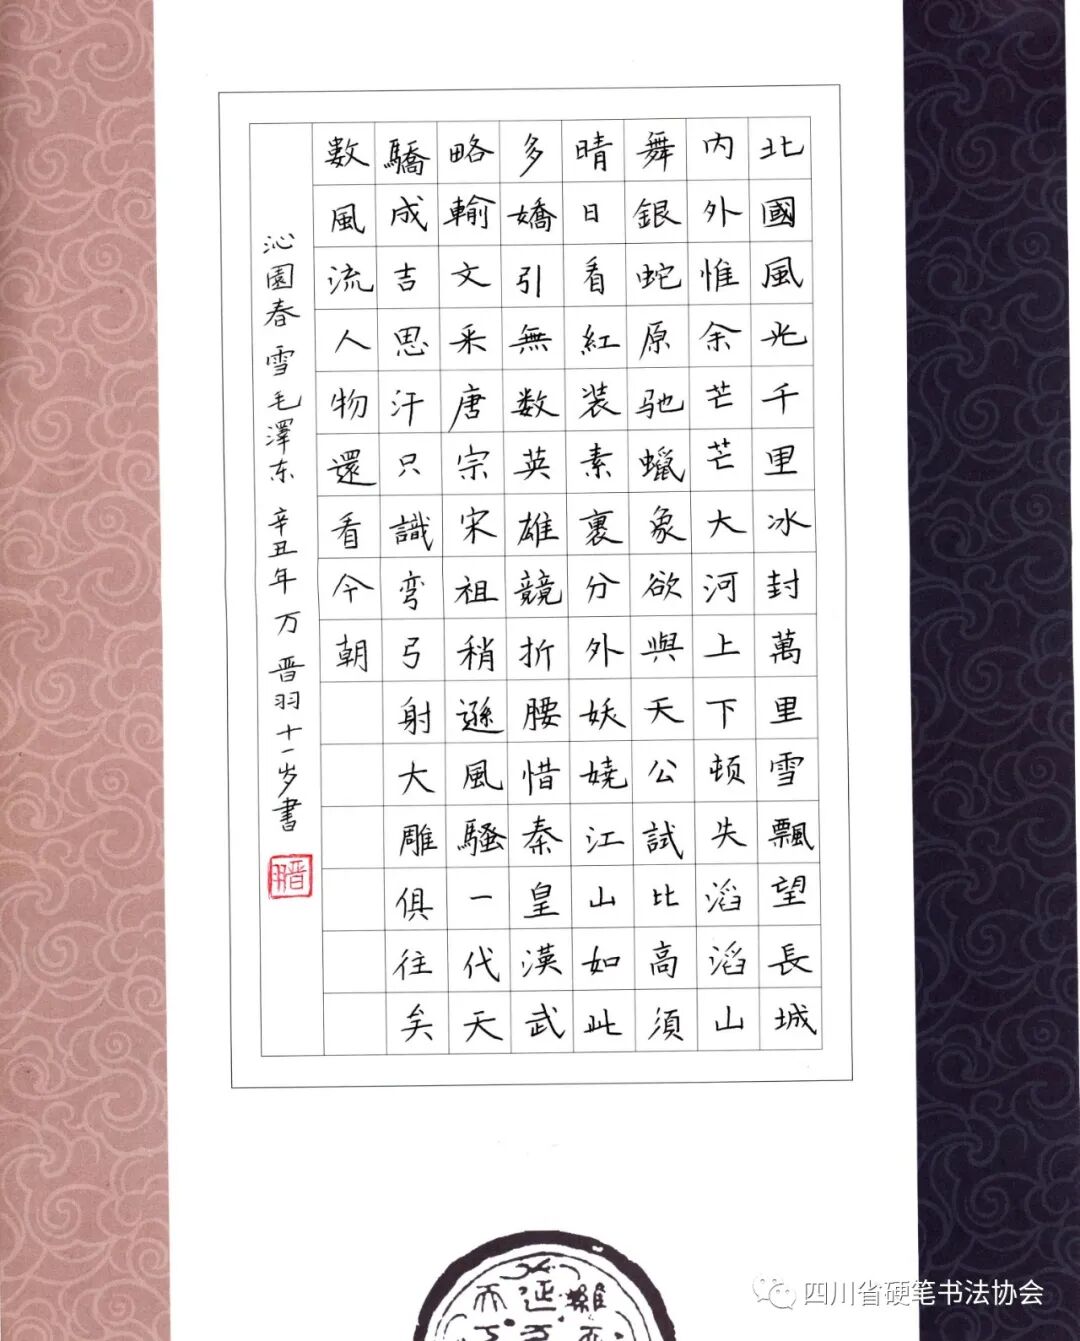 北國風光千里冰封萬里雪飄望長城
内外惟余芒芒大河上下頓失滔滔山
舞銀蛇原驰蠟象欲與天公試比高須
晴日看紅装素裹分外妖嬈江山如此
多嬌引無数英雄競折腰惜秦皇漢武
略輸文采唐宗宋祖稍遜風騷一代天
驕成吉思汗只識弯弓射大雕俱往矣
數風流人物還看今朝
沁園春 雪 毛澤东 辛丑年 万晋羽十一岁書
晋羽
四川省硬笔书法协会